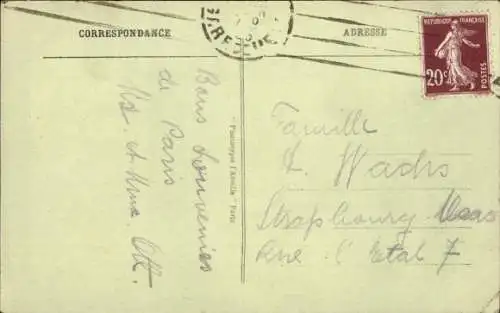 CORRESPONDANCE
ADRESSE
REPUBLIQUE FRANÇAISE
20c
POSTES
Bons Souvenirs
de Paris
Mr. et Mme. Ott.
Phototypie l'Abeille - Paris
Famille
A. Wachs
Strasbourg
Rue l'Etal 7